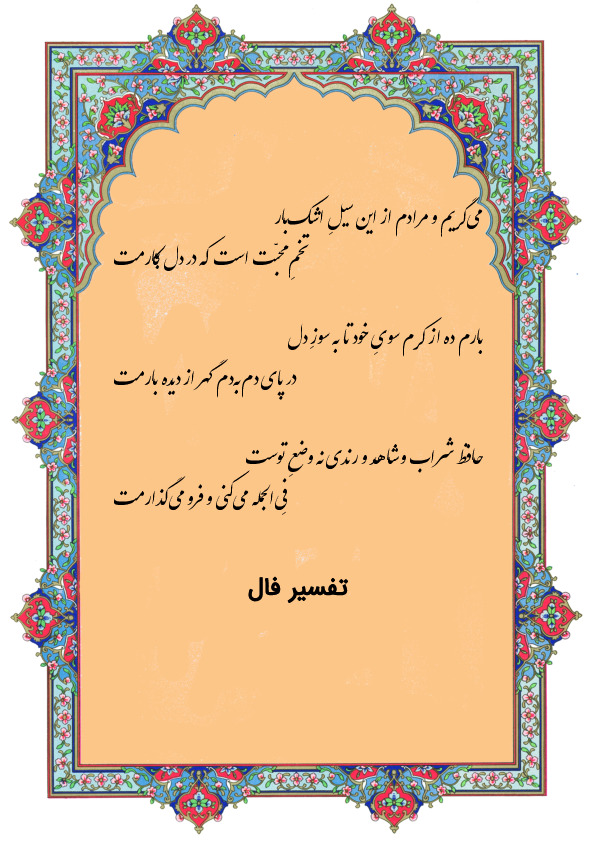 می‌گریم و مرادم از این سیلِ اشک‌بار
تخمِ محبّت است که در دل بکارمت
بارم ده از کرم سویِ خود تا به سوزِ دل
در پای دم‌به‌دم گهر از دیده بارمت
حافظ شراب و شاهد و رندی نه وضعِ توست
فِی‌الجمله می‌کنی و فرو می‌گذارمت
تفسیر فال